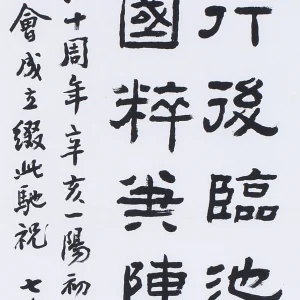 後臨池
國粹兼陳
十周年辛亥一陽初
會成立綴此馳祝 七